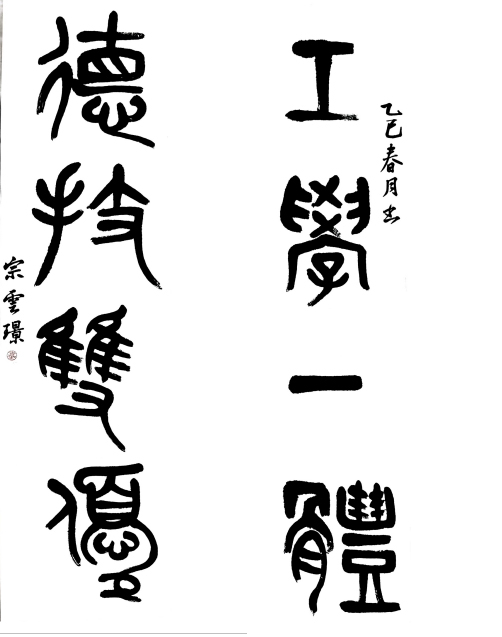 乙巳春月書
工學一體
德技雙優
宗雲璟